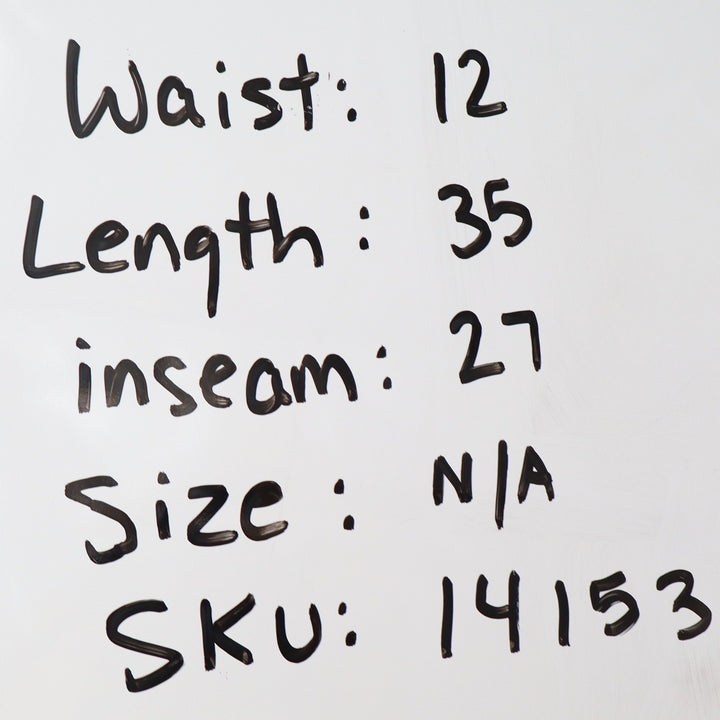 Waist: 12
Length: 35
inseam: 27
Size: N/A
SKU: 14153